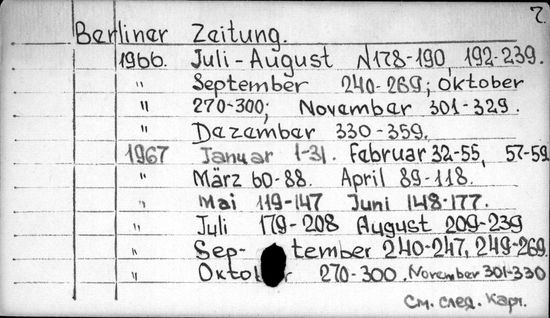 2.
Berliner Zeitung.
1966. Juli-August N178-190, 192-239.
" September 240-269; Oktober
" 270-300; November 301-329.
" Dezember 330-359.
1967 Januar 1-31. Februar 32-55, 57-59
" März 60-88. April 89-118.
" Mai 119-147 Juni 148-177.
" Juli 179-208 August 209-239
" Sep-tember 240-247, 249-269.
" Oktober 270-300. November 301-330
См. след. карт.